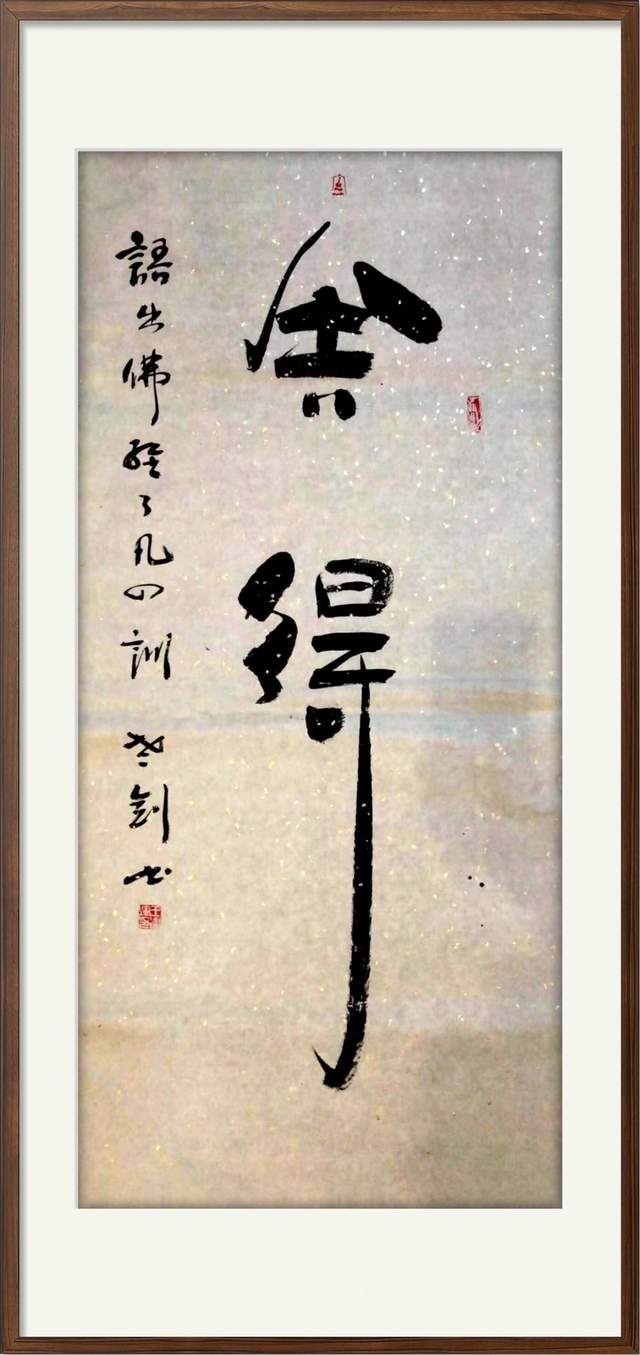 舍得
語出佛經了凡四訓 剑书